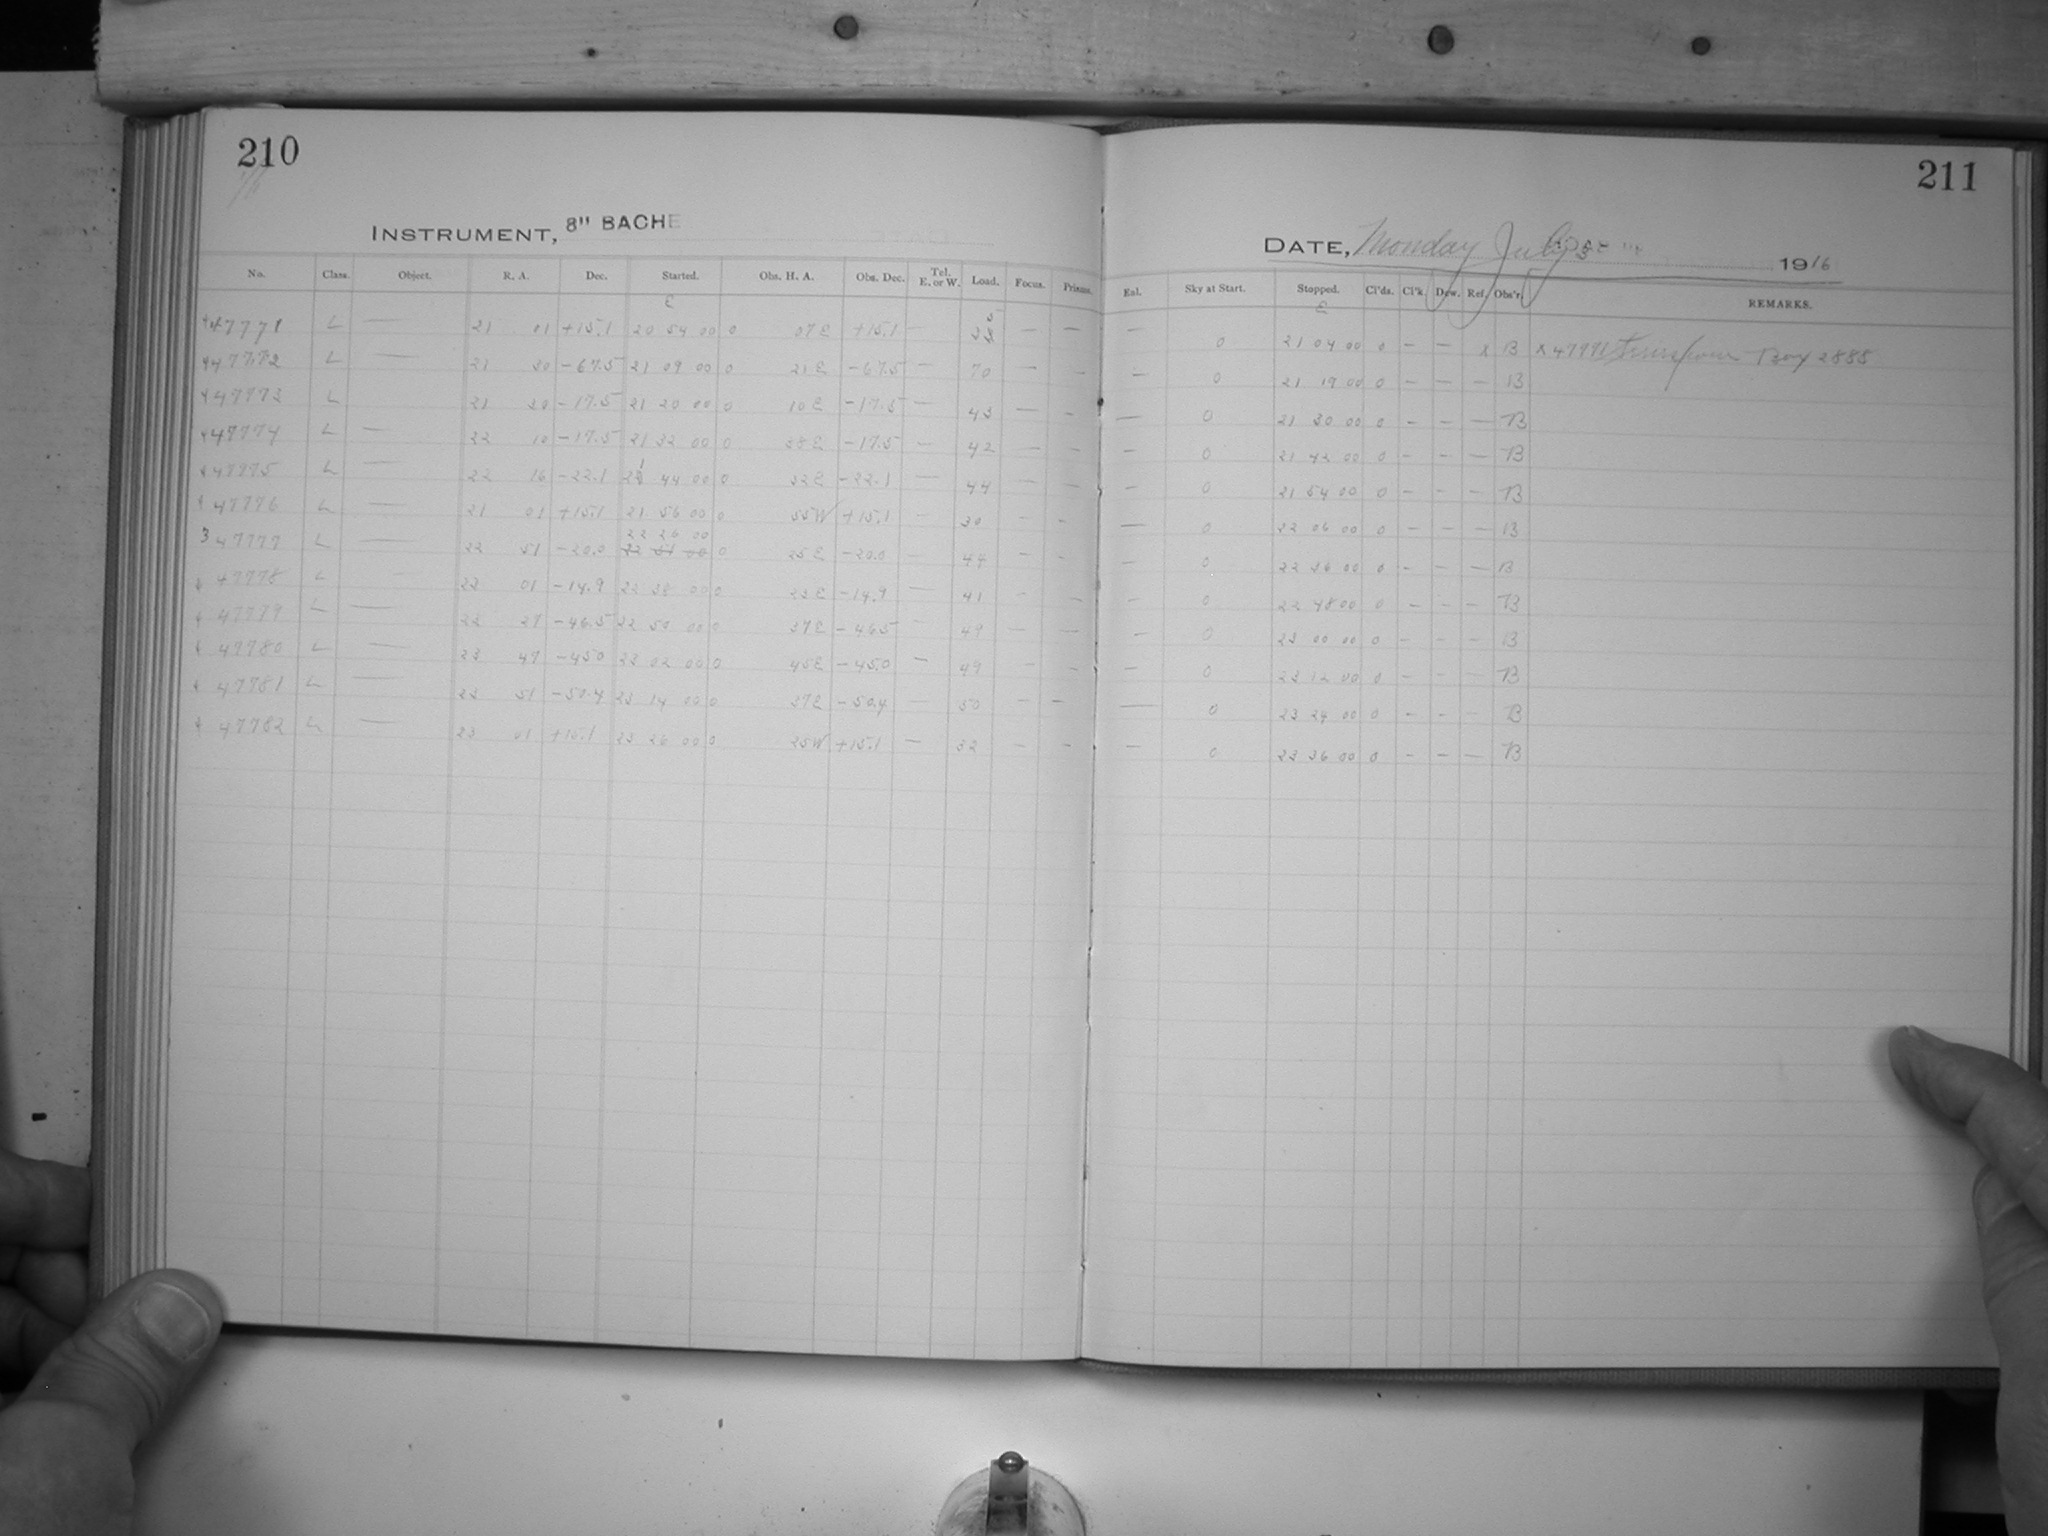 210
INSTRUMENT, 8" BACHE
No. Class. Object. R. A. Dec. Started. Obs. H. A. Obs. Dec. Tel. E. or W. Load. Focus. Prisms.
E
47771 L — 21 01 +15.1 20 54 00 0 07E +15.1 — — —
47772 L — 21 30 -67.5 21 09 00 0 21E -67.5 — 70 — —
47773 L — 21 30 -17.5 21 20 00 0 10E -17.5 — 43 — —
47774 L — 22 10 -17.5 21 32 00 0 38E -17.5 — 42 — —
47775 L — 22 16 -22.1 21 44 00 0 32E -22.1 — 44 — —
47776 L — 21 01 +15.1 21 56 00 0 55W +15.1 — 30 — —
22 26 00
3 47777 L — 22 51 -20.0 0 25E -20.0 — 44 — —
47778 L — 22 01 -14.9 22 38 00 0 -14.9 — 41 — —
47779 L — 22 27 -46.5 22 50 00 0 37E -46.5 — 49 — —
47780 L — 23 47 -45.0 23 02 00 0 45E -45.0 — 49 — —
47781 L — 23 51 -50.4 23 14 00 0 37E -50.4 — 50 — —
47782 L — 23 01 23 26 00 0 25W +15.1 — 32 — —
211
DATE, Monday July 3 1916
Enl. Sky at Start. Stopped. Cl'ds. Cl'k. Dew. Ref. Obs'r. REMARKS.
E
— 0 21 04 00 0 — — x B x 47771 Box 2885
— 0 21 19 00 0 — — — B
— 0 21 30 00 0 — — — B
— 0 21 42 00 0 — — — B
— 0 21 54 00 0 — — — B
— 0 22 06 00 0 — — — B
— 0 22 36 00 0 — — — B
— 0 22 48 00 0 — — — B
— 0 23 00 00 0 — — — B
— 0 23 12 00 0 — — — B
— 0 23 24 00 0 — — — B
— 0 23 36 00 0 — — — B